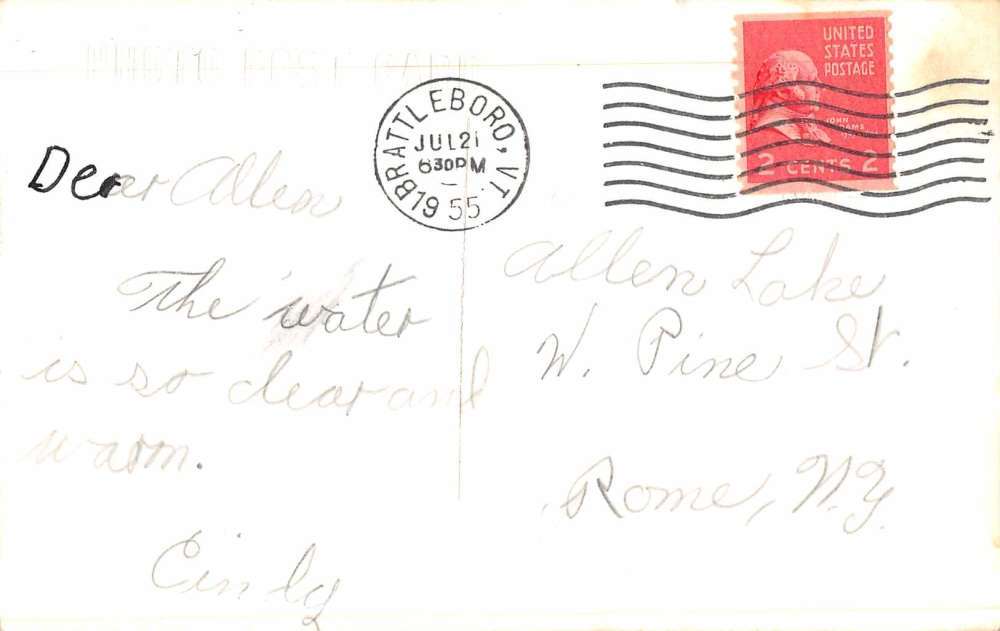 BRATTLEBORO, VT.
JUL 21
630 PM
1955
UNITED
STATES
POSTAGE
JOHN
ADAMS
2 CENTS 2
Dear Allen
The water
is so clear and
warm.
Cindy
Allen Lake
W. Pine St.
Rome, N.Y.